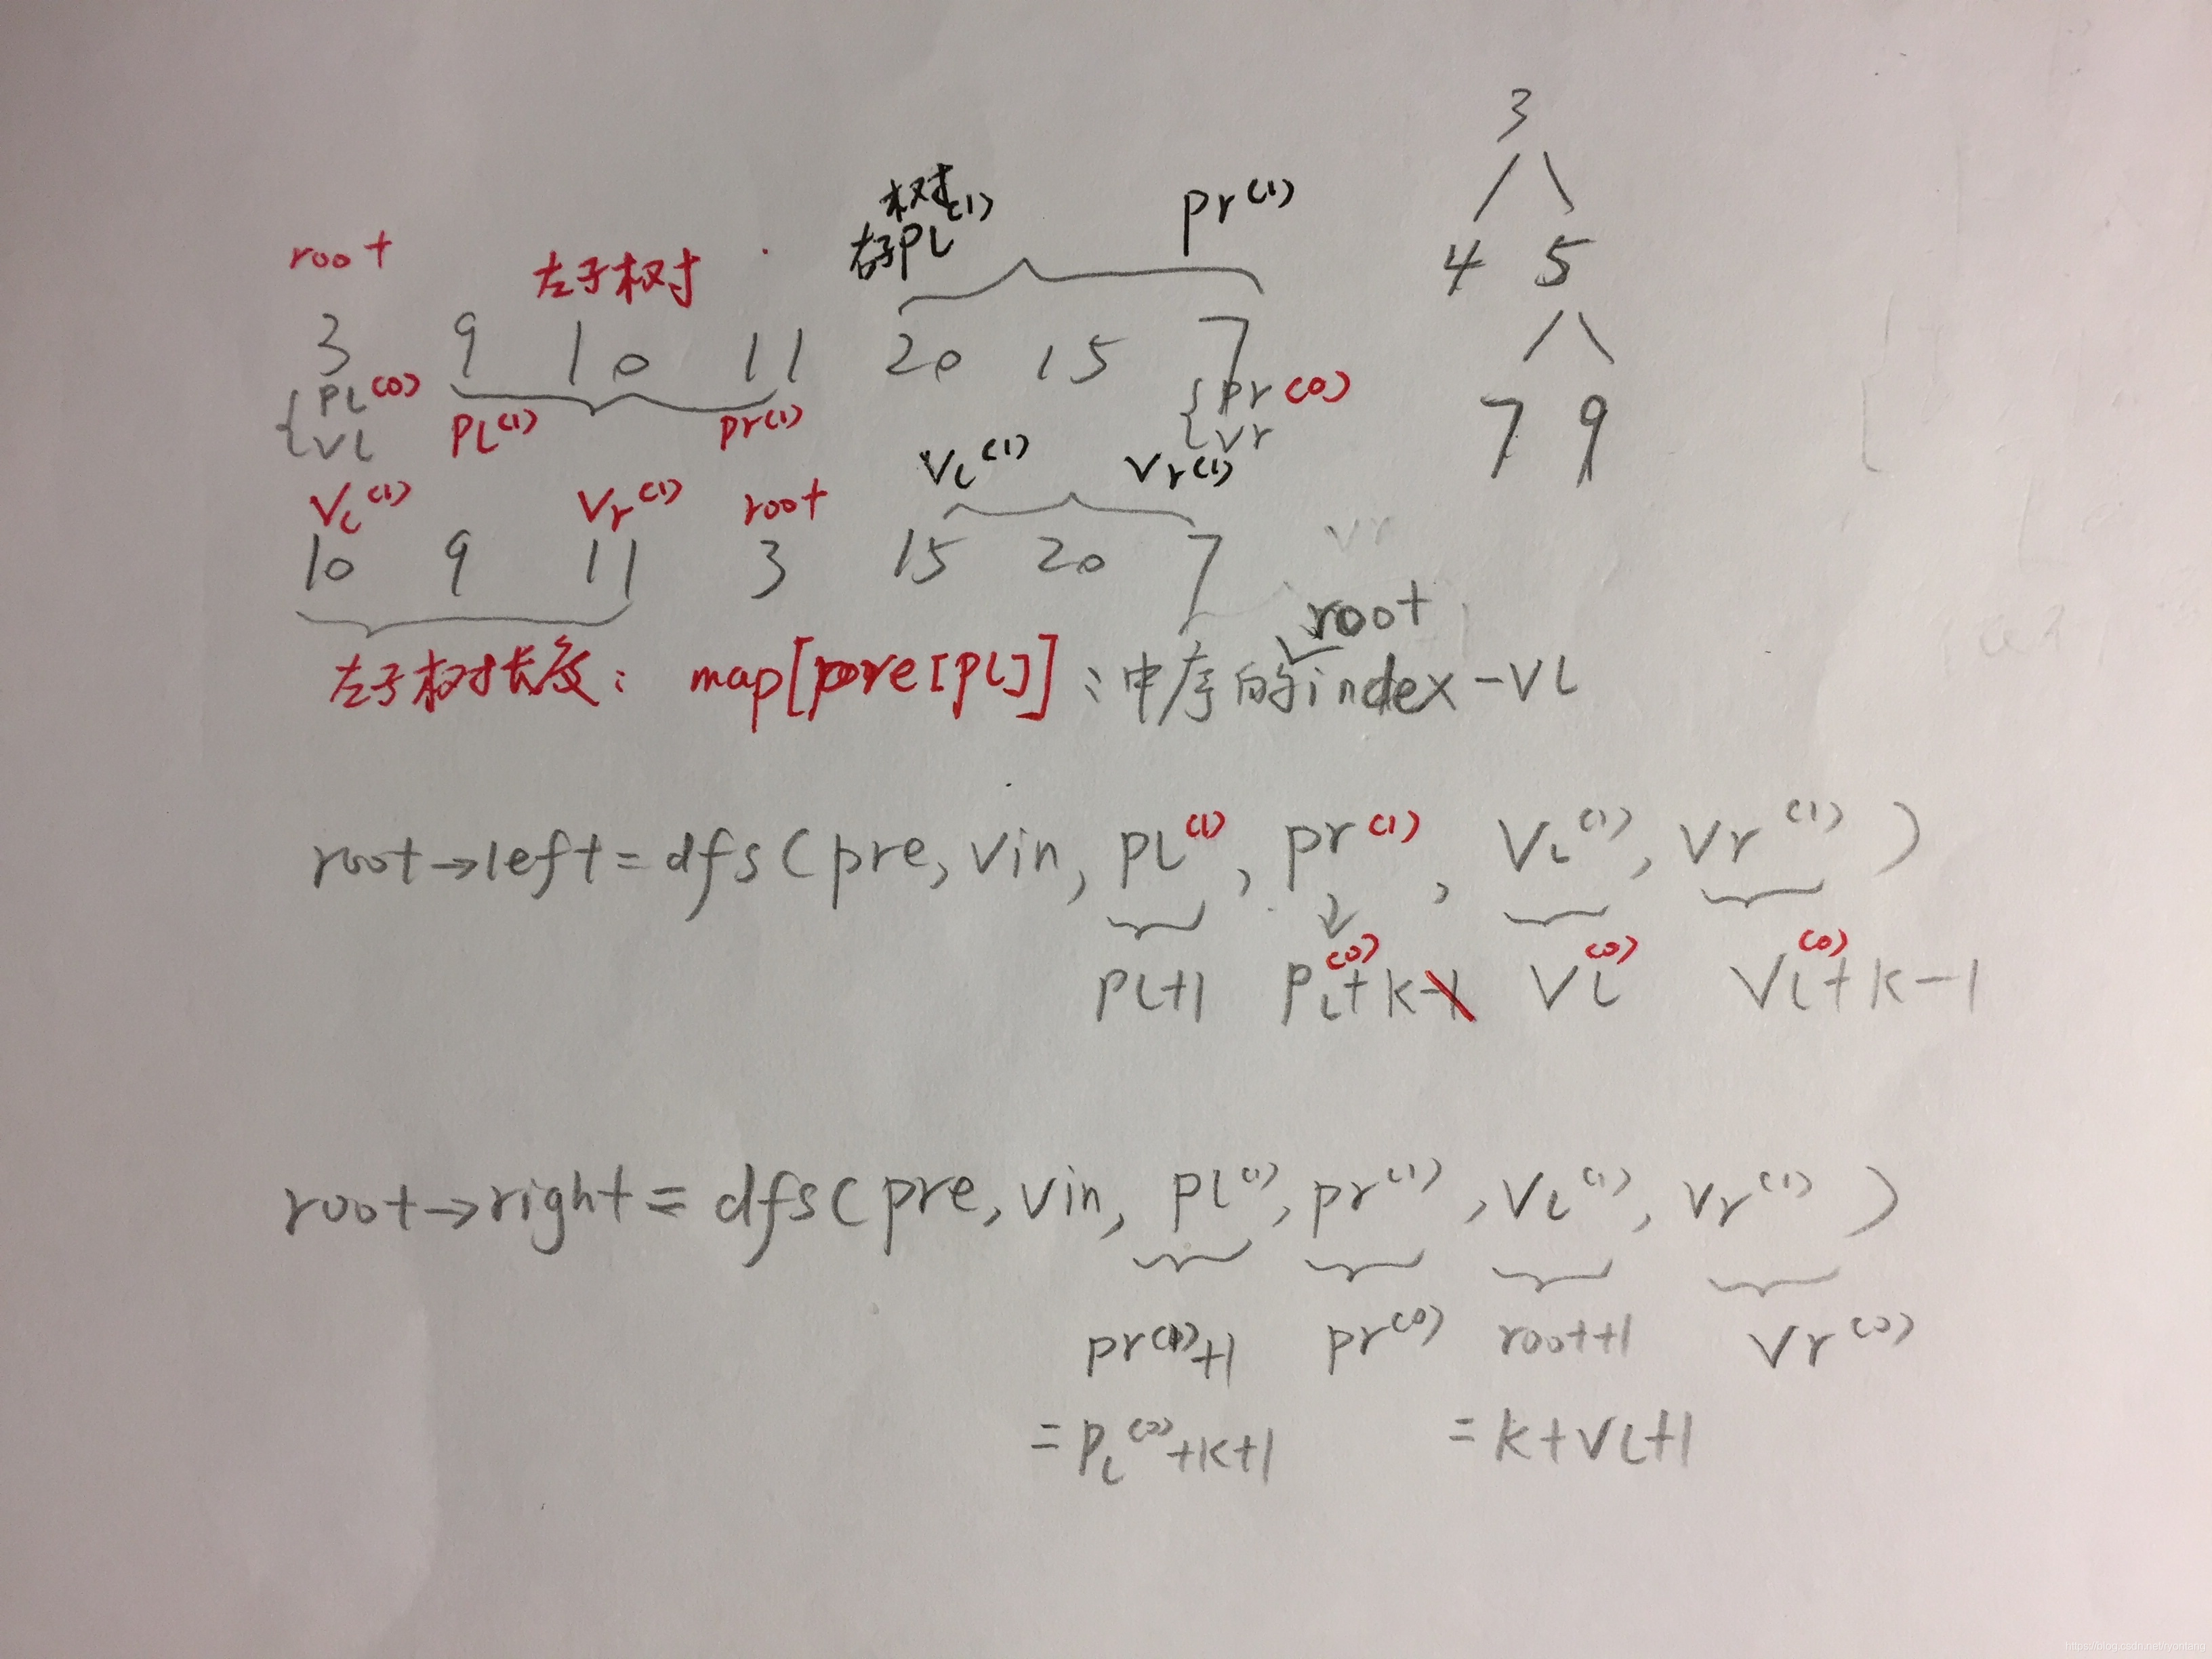 3
4 5
7 9
root 左子树 右子树 pl(1) pr(1)
3 9 10 11 20 15 7
pl(0) pl(1) pr(1) pr(0)
vl vr
vl(1) vr(1) root vl(1) vr(1)
10 9 11 3 15 20 7
vr
左子树长度: map[pre[pl]]: 中序的root index-vl
root→left=dfs(pre, vin, pl(1), pr(1), vl(1), vr(1))
pl+1 pl(0)+k-1 vl(0) vl(0)+k-1
root→right=dfs(pre, vin, pl(1), pr(1), vl(1), vr(1))
pr(1)+1 pr(0) root+1 vr(0)
=pl(0)+k+1 =k+vl+1
https://blog.csdn.net/ryontang